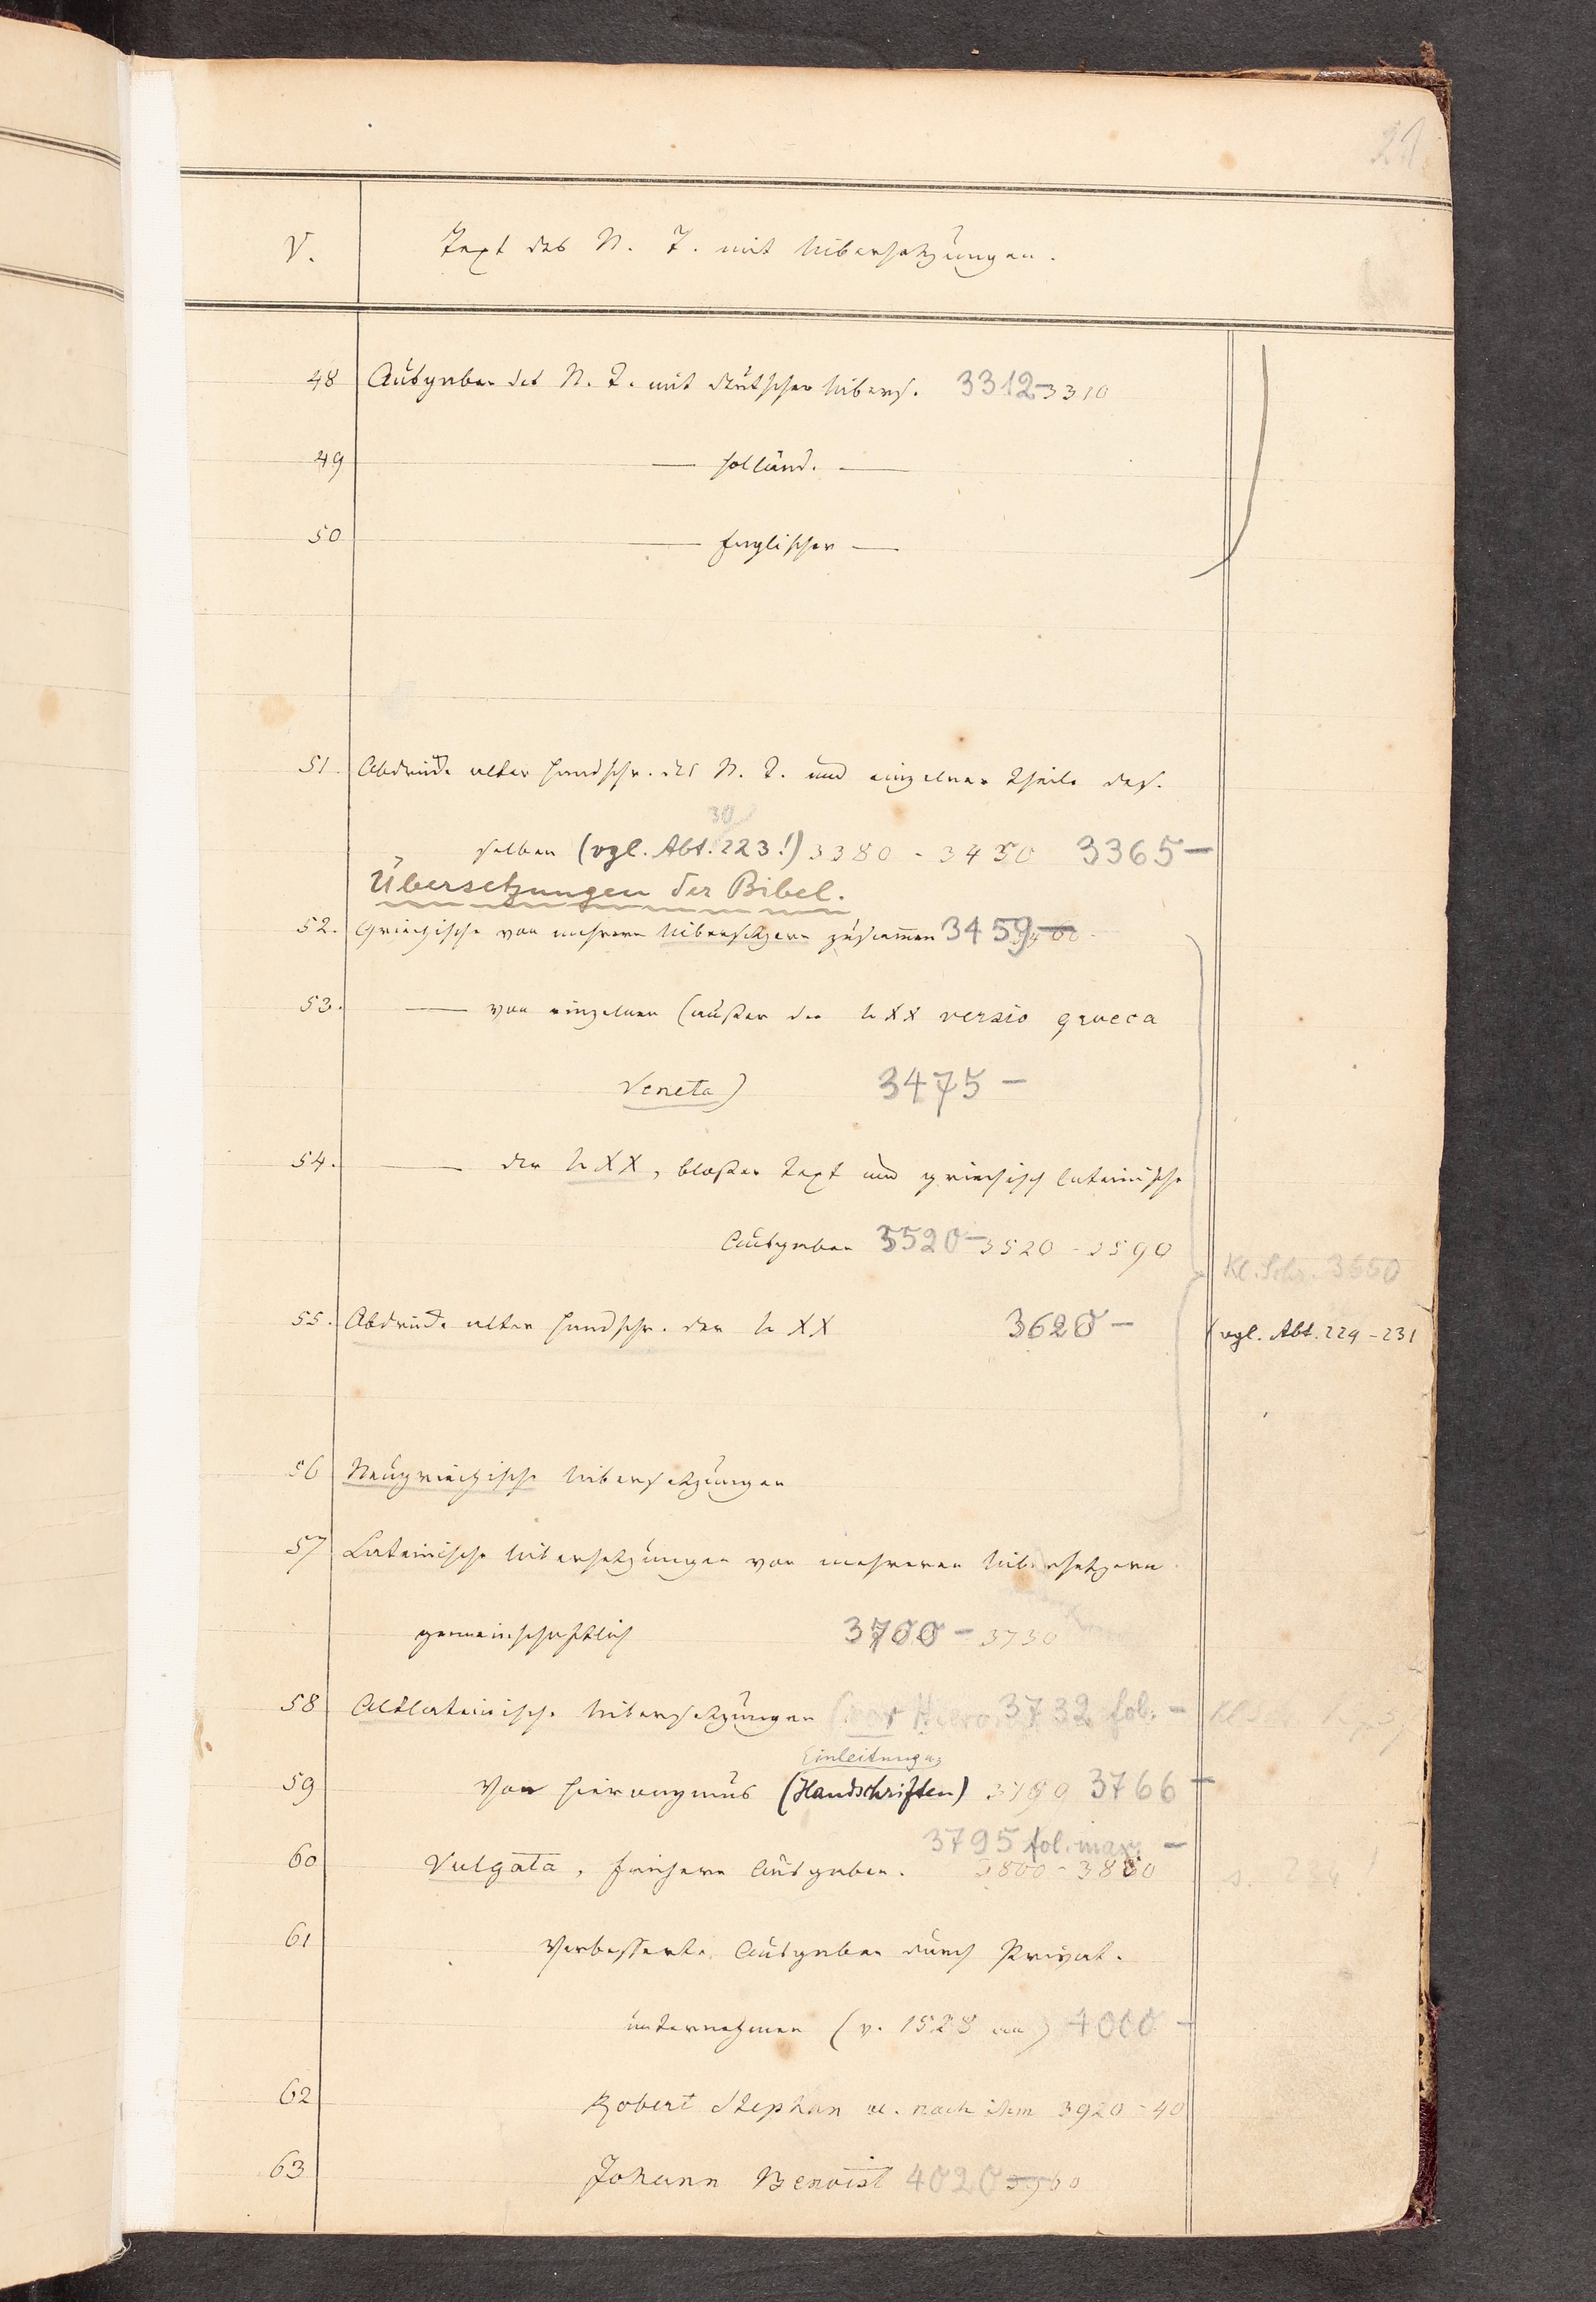 21
V. Text des N. T. mit Uibersetzungen.
48 Ausgaben des N. T. mit deutscher Uibers. 3312-3310
49 — holländ. —
50 — Englischer —
51 Abdrücke alter Handschr. des N. T. und einzelner Theile des-
30
selben (vgl. Abt. 223!) 3380 - 3430 3365 -
Übersetzungen der Bibel.
52. Griechische von mehrern Uibersetzern zusammen 3459 -
53. — von einzelnen (außer der LXX versio graeca
Veneta) 3475 -
54. — der LXX, bloßer Text und griechisch lateinische
Ausgaben 3520 - 3520 - 3590
Kl. Schr. 3650
55. Abdrücke alter Handschr. der LXX 3620 - (vgl. Abt. 229-231
56 Neugriechische Uibersetzungen
57 Lateinische Uibersetzungen von mehreren Uibersetzern
gemeinschaftlich 3700 - 3730
58 Altlateinische Uibersetzungen (vor Hieron 3732 fol. -
Einleitung u.
59 Von Hieronymus (Handschriften) 3766 -
3795 fol. max. -
60 Vulgata, frühere Ausgaben. 3800 - 3880
61 Verbesserte Ausgaben durch Privat-
unternehmen (v. 1528 an) 4000 -
62 Robert Stephan u. nach ihm 3920 - 40
63 Johann Benoist 4020 3960